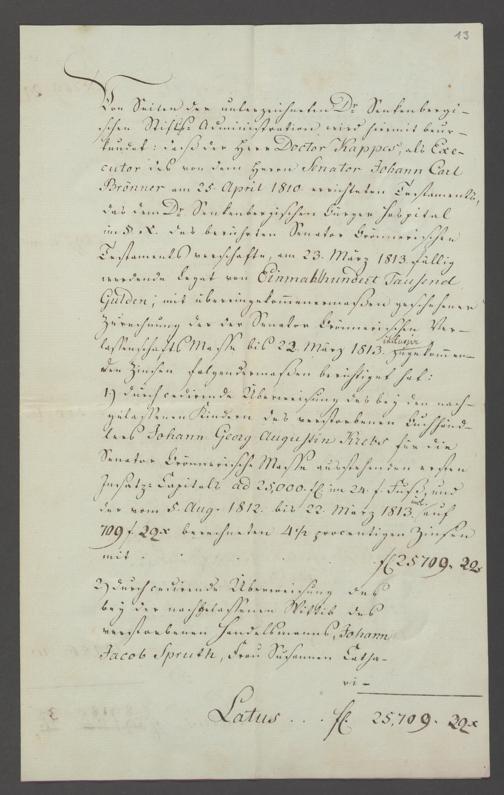 13
Von Seiten der unterzeichneten Dr. Senkenbergi-
schen Stifts-Administration, wird hiermit beur-
kundet: daß der Herr Doctor Kappes, als Exe-
cutor des von dem Herrn Senator Johann Carl
Brönner am 25. April 1810 errichteten Testaments,
das dem Dr. Senkenbergischen Bürger Hospital
im § X. des berührten Senator Brönnerischen
Testaments verschaffte, am 23. März 1813. fällig
werdende Legat von Einmahlhundert Tausend
Gulden; mit übereingekommenermaßen geschehener
Zurechnung der der Senator Brönnerischen Ver-
lassenschafts Masse bis 22. März 1813. inclusive zugekommen-
den Zinsen folgendermaßen berichtiget hat:
1.) durch cedirende Überweisung des bey den nach-
gelassenen Kindern des verstorbenen Buchhänd-
lers Johann Georg Augustin Krebs für die
Senator Brönnerische Masse ausstehenden ersten
Insatz-Capitals ad 25,000. fl. im 24. f. Fuß, und
der vom 5. Aug. 1812. bis 22. März 1813. auf
709 f. 29 x berechneten 4½ procentigen Zinsen
mit . . . . fl. 25709. 29 x
2.) durch cedirende Überweisung des
bey der nachgelassenen Wittib des
verstorbenen Handelsmanns, Johann
Jacob Spruth, Frau Susannen Catha-
ri-
Latus . . . fl. 25,709. 29 x